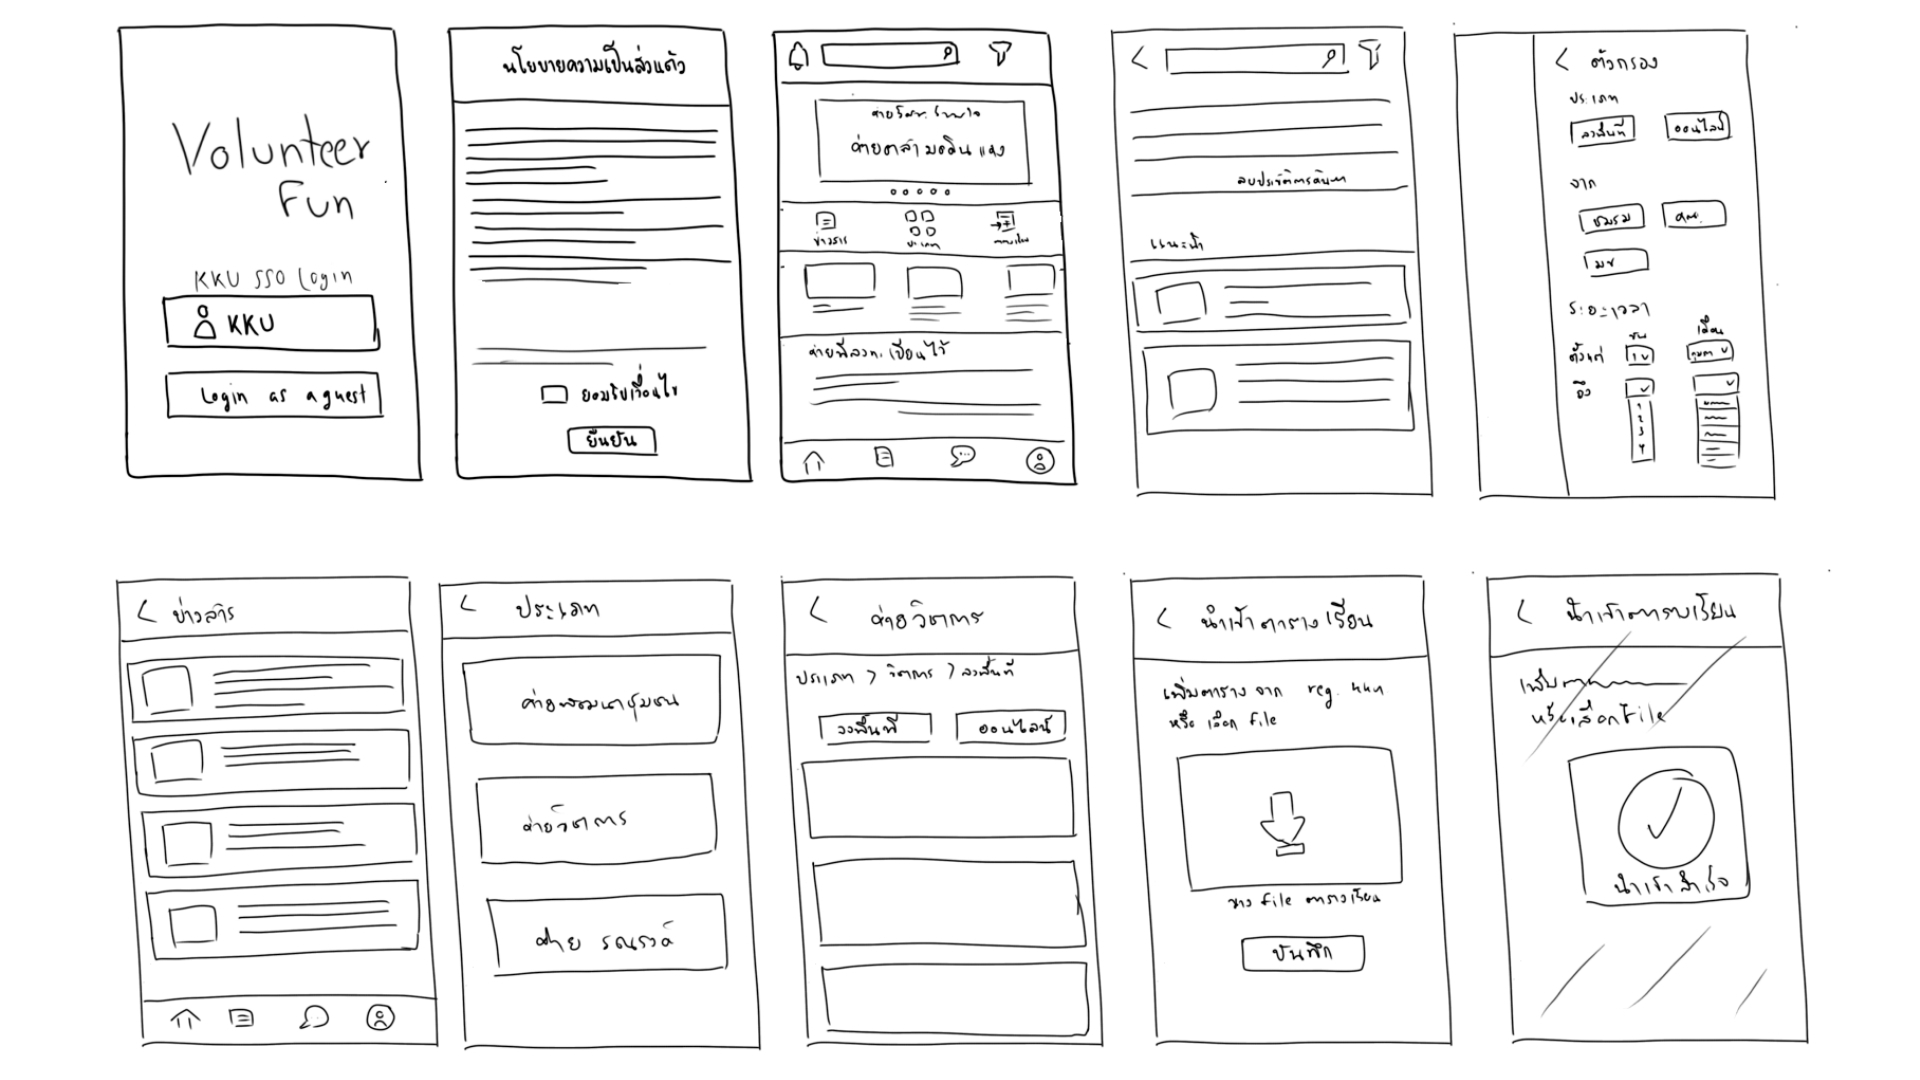 Volunteer
Fun
KKU SSO Login
KKU
Login as a guest
นโยบายความเป็นส่วนตัว
ยอมรับเงื่อนไข
ยืนยัน
ค่าย
ข่าวสาร
ประเภท
ค่ายที่ลงทะเบียนไว้
ลบประวัติการค้นหา
แนะนำ
ตัวกรอง
ประเภท
ลงพื้นที่ ออนไลน์
จาก
ชมรม คณะ
มข
ระยะเวลา
วัน เดือน
ตั้งแต่ 1
ถึง
1
2
3
4
ข่าวสาร
ประเภท
ค่ายพัฒนาชุมชน
ค่ายวิชาการ
ค่าย รณรงค์
ค่ายวิชาการ
ประเภท > วิชาการ > ลงพื้นที่
ลงพื้นที่ ออนไลน์
นำเข้าตารางเรียน
เพิ่มตาราง จาก reg. kku
หรือ เลือก file
วาง file ตารางเรียน
บันทึก
นำเข้าตารางเรียน
เพิ่ม
หรือเลือก File
นำเข้าสำเร็จ